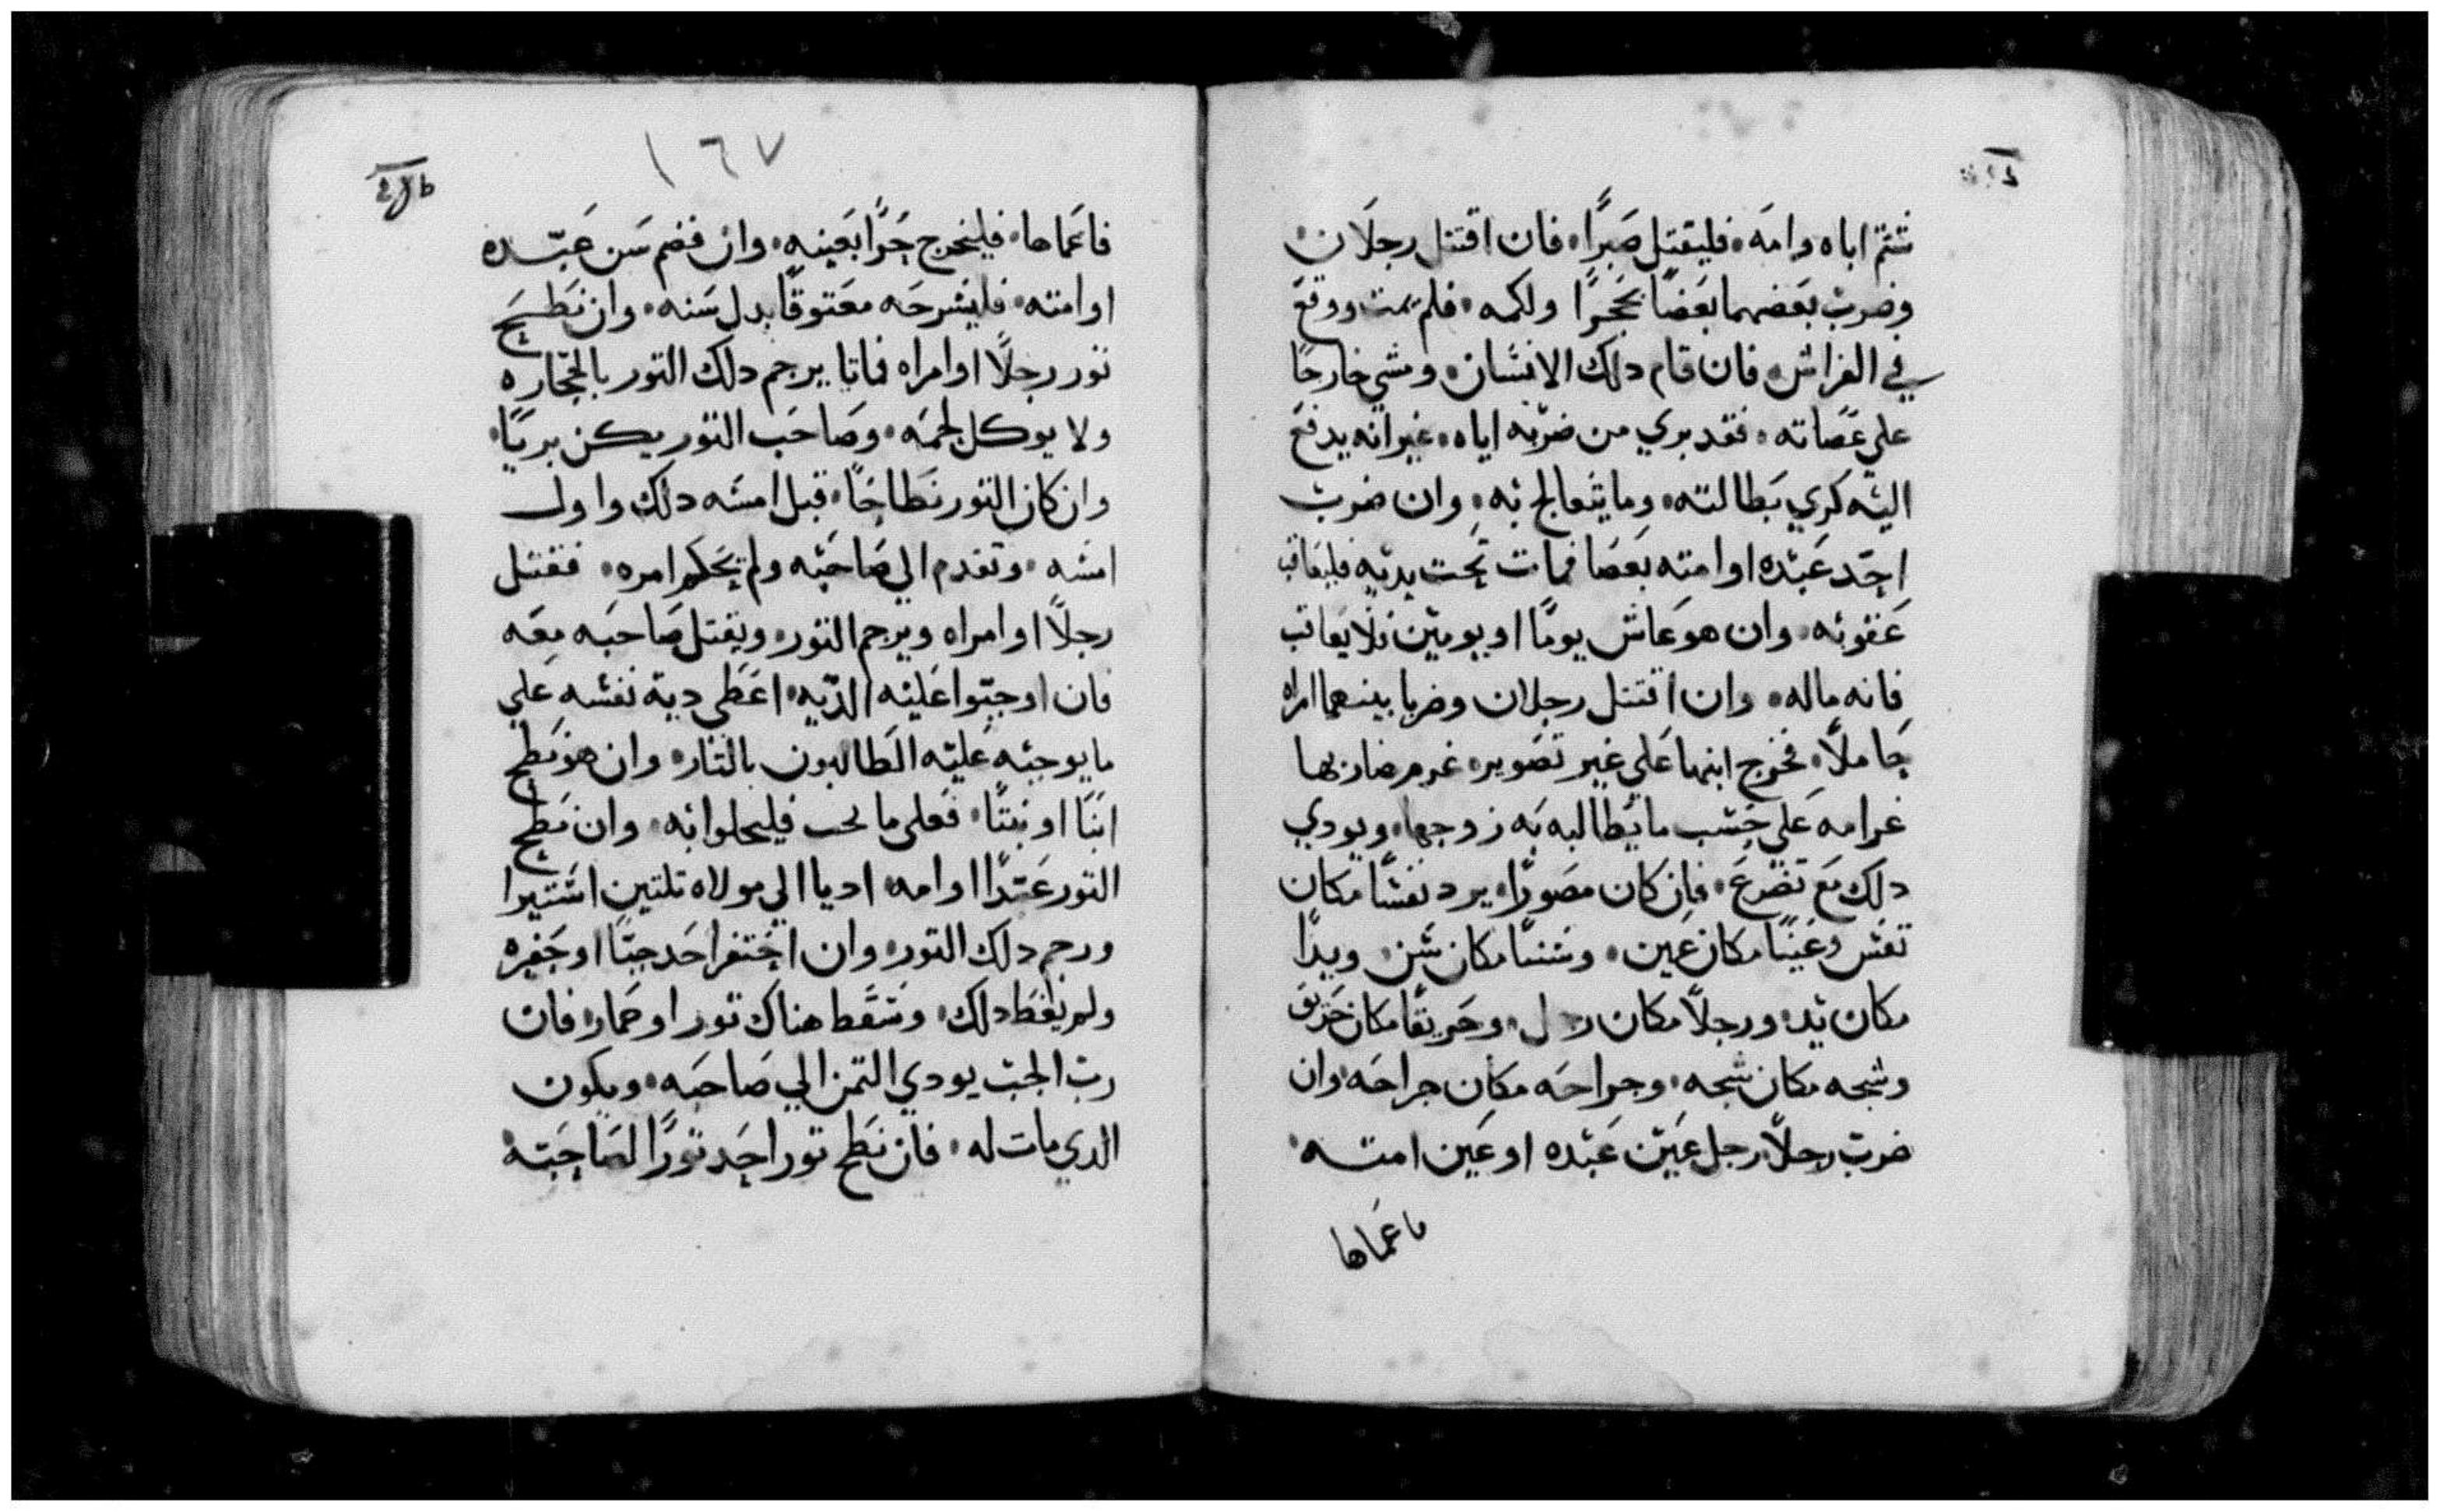 شتم اباه وامه، فليقتل صبرًا، فان اقتتل رجلان
وضرب بعضهما بعضًا بحجرًا ولكمه، فلم يمت ووقع
في الفراش، فان قام دلك الانسان، ومشي خارجًا
علي عصاته، فقد بري من ضربه اياه، غير انه يدفع
اليه كري بطالته، وما يتعالج به، وان ضرب
احد عبده او امته بعصا فمات تحت يديه فليعاقب
عقوبه، وان هو عاش يومًا او يومين فلا يعاقب
فانه ماله، وان اقتتل رجلان وضربا بينهما امراه
حاملًا، فخرج ابنها علي غير تصوير، غرم ضاربها
غرامه علي حسب ما يطالبه به زوجها، ويودي
دلك مع تضرع، فان كان مصورًا، يرد نفسًا مكان
نفس وعينًا مكان عين، وسنًا مكان سن، ويدًا
مكان يد، ورجلًا مكان رجل، وحريقًا مكان حريق
وشجه مكان شجه، وجراحه مكان جراحه، وان
ضرب رجلًا رجل عين عبده او عين امته
فاعماها
١٦٧
فاعماها، فليخرج حرًا بعينه، وان فضم سن عبده
او امته، فليسرحه معتوقًا بدل سنه، وان نطح
تور رجلًا او امراه فماتا يرجم دلك التور بالحجاره
ولا يوكل لحمه، وصاحب التور يكن بريًا،
وان كان التور نطاحًا، قبل امسه دلك واول
امسه، وتقدم الي صاحبه ولم يحكم امره، فقتل
رجلًا او امراه ويرجم التور، ويقتل صاحبه معه
فان اوجبوا عليه الديه، اعطي دية نفسه علي
ما يوجبه عليه الطالبون بالتار، وان هو نطح
ابنًا او بنتًا، فعلي ما يجب فليحلوا به، وان نطح
التور عبدًا او امه، اديا الي مولاه تلتين استيرا
ورجم دلك التور، وان احتفر احد جبًا او حفره
ولم يغط دلك، وسقط هناك تور او حمار، فان
رب الجب يودي التمن الي صاحبه، ويكون
الدي مات له، فان نطح تور احد تورًا لصاحبه